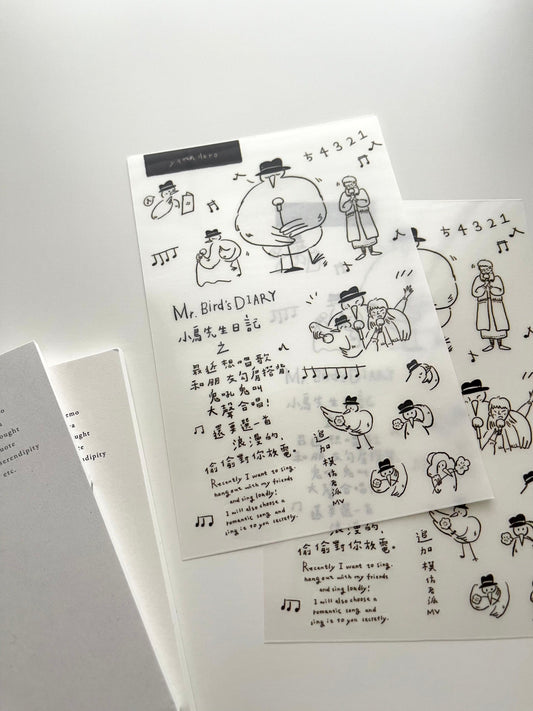 yamadoro
ㄘ 4 3 2 1
Mr. Bird's DIARY
小鳥先生日記
之
最近想唱歌
和朋友勾肩搭背,
鬼吼鬼叫
大聲合唱!
還要選一首
浪漫的,
偷偷對你放電。
Recently I want to sing.
hang out with my friends
and sing loudly!
I will also choose a
romantic song and
sing it to you secretly.
追
加
模
仿
者
派
MV
5 4 3 2 1
浪漫的,
偷偷對你放電。
Recently I want to sing.
hang out with my friends
and sing loudly!
I will also choose a
romantic song and
sing it to you secretly.
追
加
模
仿
者
派
MV
ought
ote
serendipity
etc.
emo
a
ought
uote
ndipity